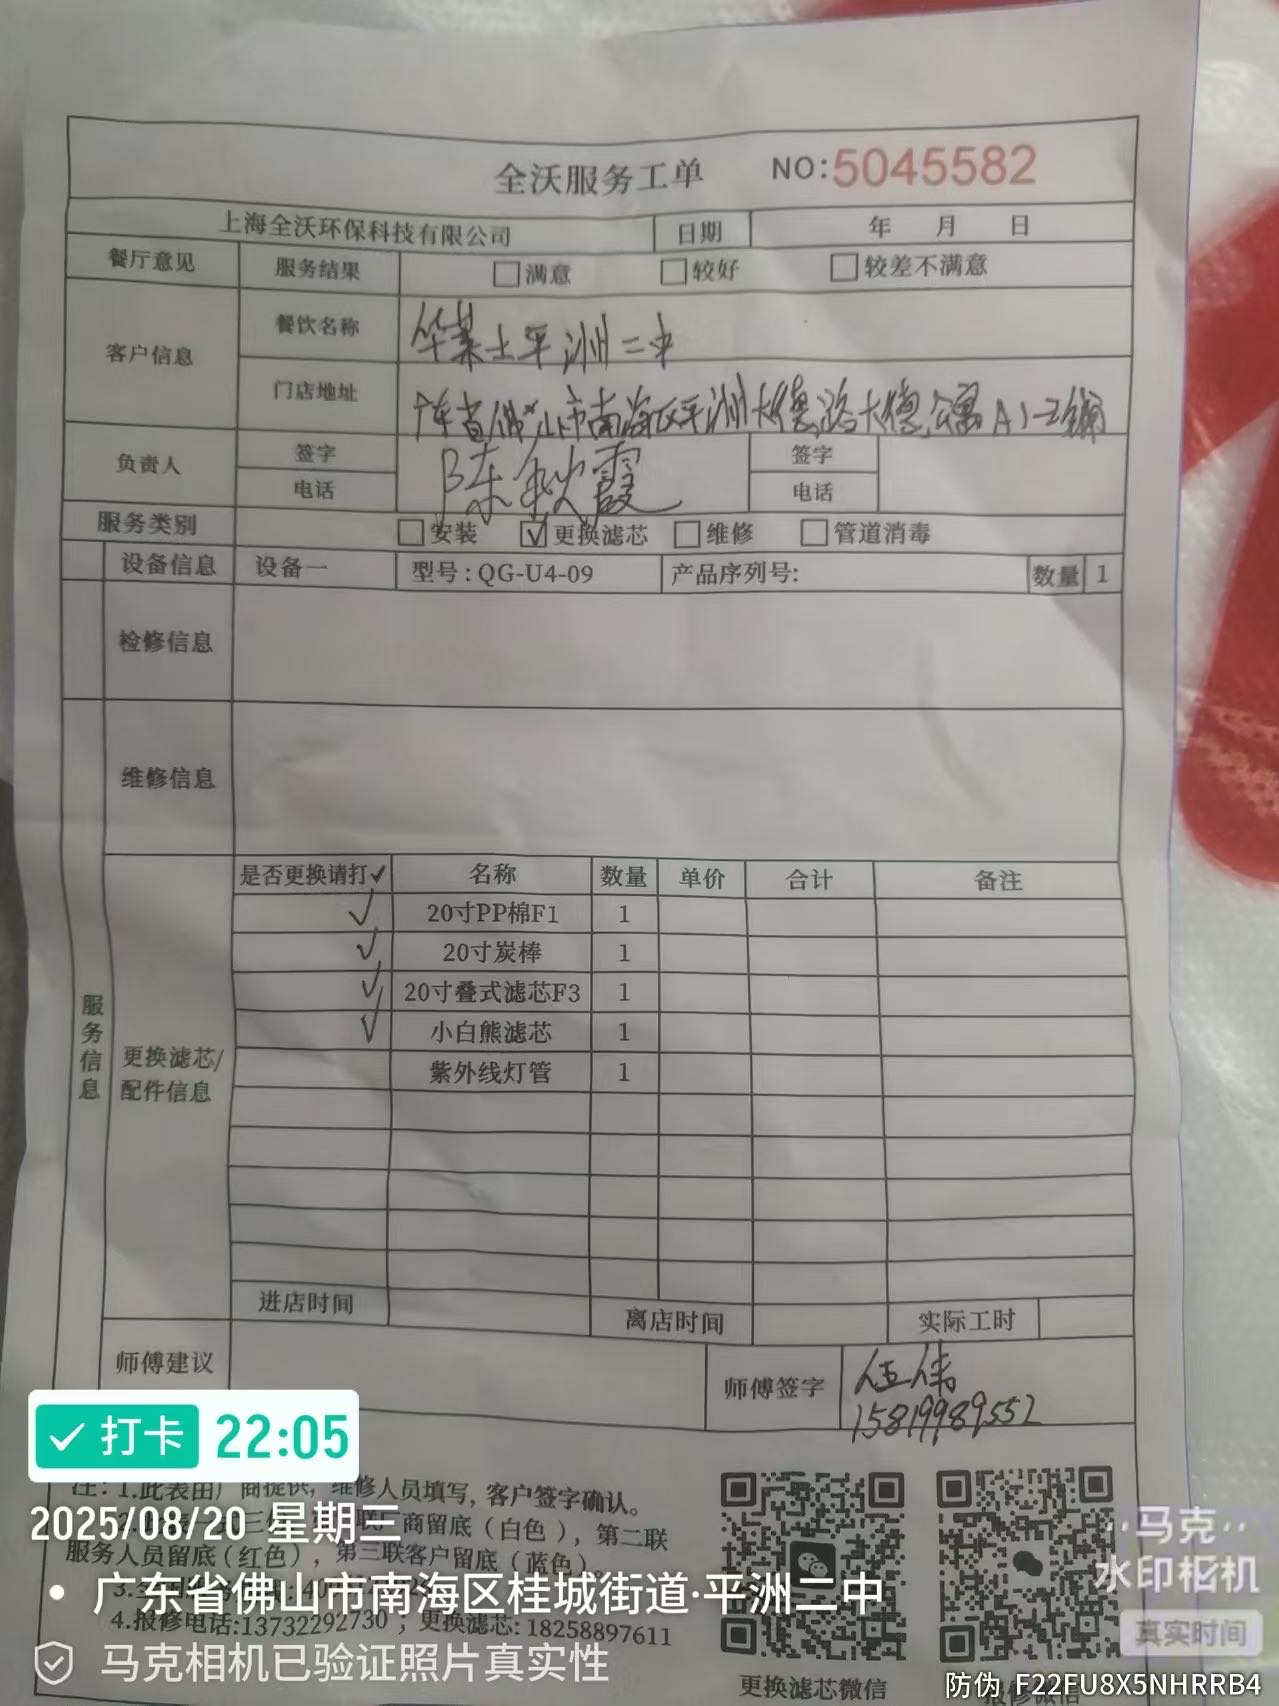 全沃服务工单 NO:5045582
上海全沃环保科技有限公司 日期 年 月 日
餐厅意见 服务结果 □满意 □较好 □较差不满意
客户信息 餐饮名称 华莱士平洲二中
门店地址 广东省佛山市南海区平洲大德路大德公寓A1-2铺
负责人 签字 陈秋霞 签字
电话 电话
服务类别 □安装 ☑更换滤芯 □维修 □管道消毒
设备信息 设备一 型号:QG-U4-09 产品序列号: 数量 1
检修信息
维修信息
服务信息
更换滤芯/
配件信息
是否更换请打✓ 名称 数量 单价 合计 备注
✓ 20寸PP棉F1 1
✓ 20寸炭棒 1
✓ 20寸叠式滤芯F3 1
✓ 小白熊滤芯 1
紫外线灯管 1
进店时间 离店时间 实际工时
师傅建议 师傅签字 伍伟
15819989552
打卡 22:05
注:1.此表由厂商提供,维修人员填写,客户签字确认。
2025/08/20 星期三
商留底(白色),第二联
服务人员留底(红色),第三联客户留底(蓝色)。
广东省佛山市南海区桂城街道·平洲二中
4.报修电话:13732292730;更换滤芯:18258897611
马克相机已验证照片真实性
更换滤芯微信
马克
水印相机
真实时间
防伪 F22FU8X5NHRRB4